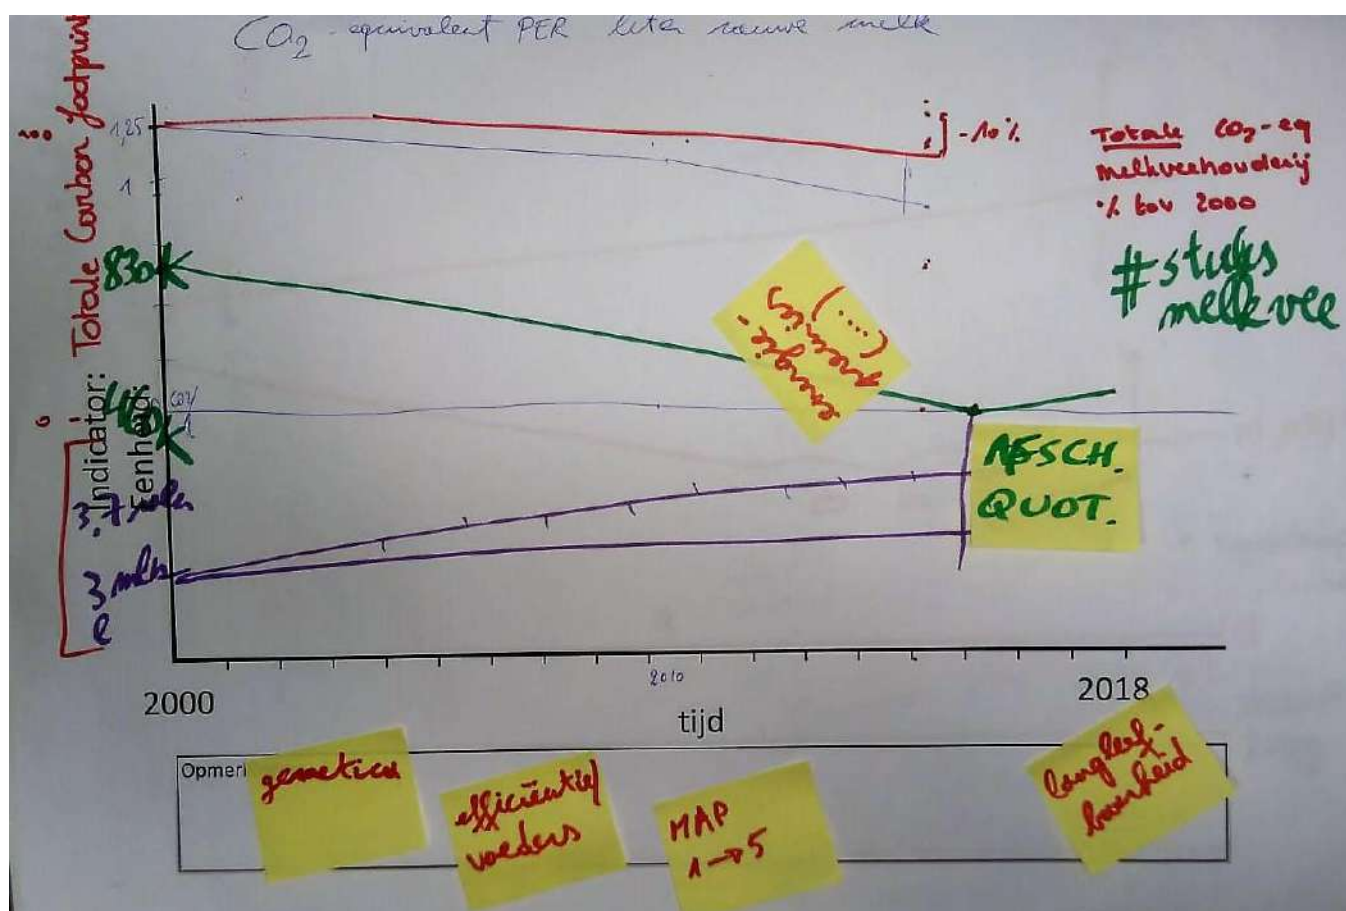 CO2 - equivalent PER liter rauwe melk
Indicator: Totale Carbon footprint
Eenheid:
100
1,25
1
830K
460K
CO2/
0
3.7
3 mln
- 10%
Totale CO2-eq
melkveehouderij
% tov 2000
# stuks
melkvee
energie-
premies
(....)
AFSCH.
QUOT.
2000
2010
2018
tijd
Opmer
genetica
efficiëntie/
voeders
MAP
1→5
langleef-
baarheid